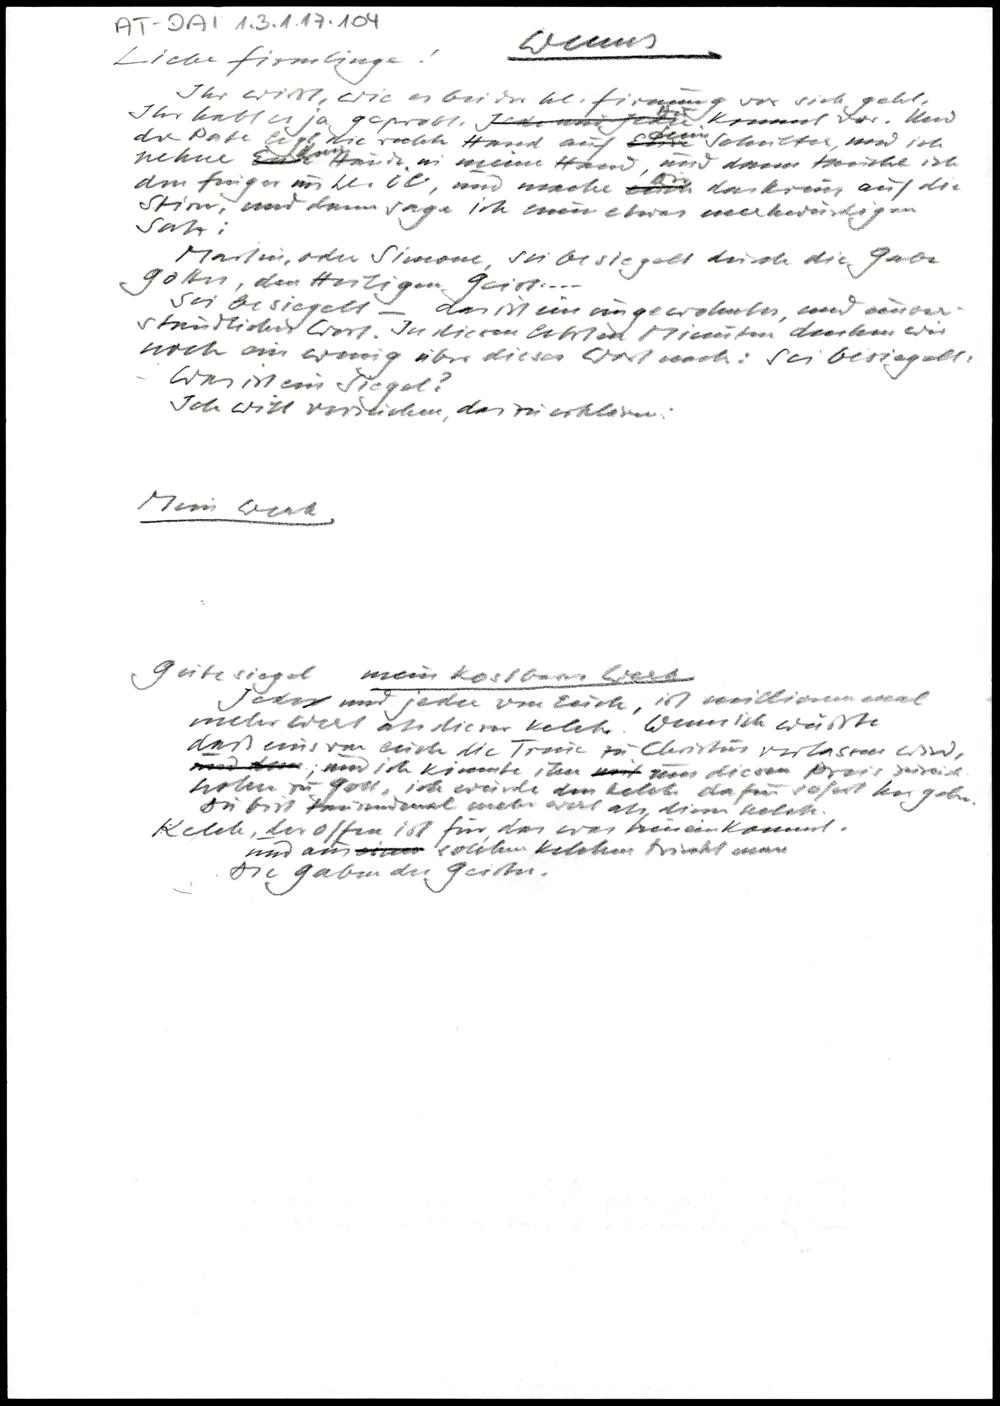 AT-DAI 1.3.1.17.104
Wenns
Liebe Firmlinge!
Ihr wißt, wie es bei der hl. Firmung vor sich geht.
Ihr habt es ja geprobt. Jede und jeder Du kommst vor. Und
der Pate legt die rechte Hand auf deine Schulter, und ich
nehme deine Hand in meine Hand, und dann tauche ich
den Finger ins hl. Öl, und mache dir das Kreuz auf die
Stirn, und dann sage ich einen etwas merkwürdigen
Satz:
Martin, oder Simone, sei besiegelt durch die Gabe
Gottes, den Heiligen Geist....
Sei besiegelt – das ist ein ungewohntes, und unver-
ständliches Wort. In diesen letzten Minuten denken wir
noch ein wenig über dieses Wort nach: Sei besiegelt.
Was ist ein Siegel?
Ich will versuchen, das zu erklären:
Mein Werk
Gütesiegel mein kostbares Werk
Jeder und jede von Euch, ist millionenmal
mehr wert als dieser Kelch. Wenn ich wüßte
daß eins von euch die Treue zu Christus verlassen wird,
und ich könnte ihn um diesen Preis zurück
holen zu Gott, ich würde den Kelch dafür sofort hergeben.
Du bist tausendmal mehr wert als dieser Kelch.
Kelch, der offen ist für das was hineinkommt.
und aus solchen Kelchen trinkt man
Die Gaben des Geistes.